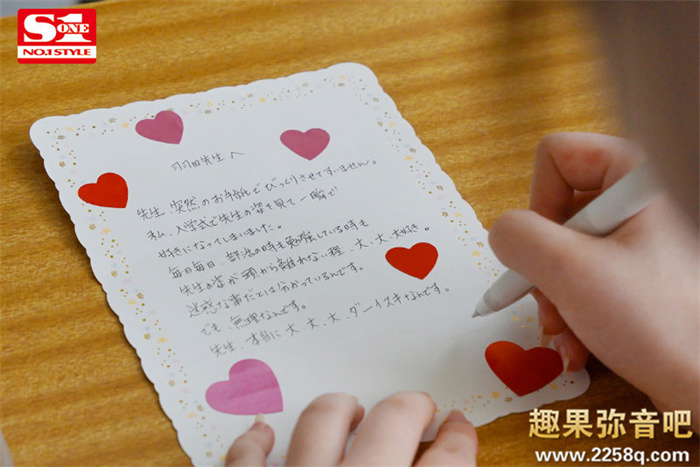 S1
ONE
NO.1 STYLE
羽田先生へ
先生、突然のお手紙でびっくりさせてすいません。
私、入学式で先生の姿を見て一瞬で
好きになってしまいました。
毎日毎日、部活の時も勉強している時も
先生の姿が頭から離れない程、大、大、大好き。
迷惑な事だとは分かっているんです。
でも、無理なんです。
先生、本当に大、大、大、ダーイスキなんです。
趣果弥音吧
www.2258q.com